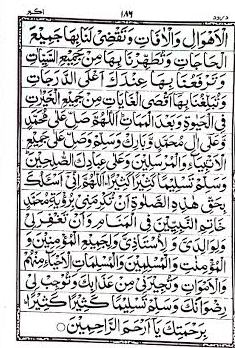 درود ١٨٦ اکبیر
الْاَهْوَالِ وَالْاٰفَاتِ وَتَقْضِیْ لَنَا بِهَا جَمِیْعَ
الْحَاجَاتِ وَتُطَهِّرُنَا بِهَا مِنْ جَمِیْعِ السَّیِّاٰتِ
وَتَرْفَعُنَا بِهَا عِنْدَكَ اَعْلَی الدَّرَجَاتِ
وَتُبَلِّغُنَا بِهَا اَقْصَی الْغَایَاتِ مِنْ جَمِیْعِ الْخَیْرٰتِ
فِی الْحَیٰوةِ وَبَعْدَ الْمَمَاتِ اَللّٰهُمَّ صَلِّ عَلٰی مُحَمَّدٍ
وَّعَلٰی اٰلِ مُحَمَّدٍ وَّبَارِكْ وَسَلِّمْ وَصَلِّ عَلٰی جَمِیْعِ
الْاَنْبِیَآءِ وَالْمُرْسَلِیْنَ وَعَلٰی عِبَادِكَ الصّٰلِحِیْنَ
وَسَلِّمْ تَسْلِیْمًا كَثِیْرًا كَثِیْرًا اَللّٰهُمَّ اِنِّیْ اَسْئَلُكَ
بِحَقِّ هٰذِهِ الصَّلٰوةِ اَنْ تَرْزُقَنِیْ رُؤْیَةَ مُحَمَّدٍ
خَاتَمِ النَّبِیِّیْنَ فِی الْمَنَامِ وَاَنْ تَغْفِرَ لِیْ
وَلِوَالِدَیَّ وَلِاُسْتَاذِیْ وَلِجَمِیْعِ الْمُؤْمِنِیْنَ وَ
الْمُؤْمِنٰتِ وَالْمُسْلِمِیْنَ وَالْمُسْلِمَاتِ الْاَحْیَآءِ مِنْهُمْ
وَالْاَمْوَاتِ وَتُجِیْرَنِیْ مِنْ عَذَابِكَ وَتُوْجِبَ لِیْ
رِضْوَانَكَ وَسَلِّمْ تَسْلِیْمًا كَثِیْرًا كَثِیْرًا
بِرَحْمَتِكَ یَا اَرْحَمَ الرَّاحِمِیْنَ